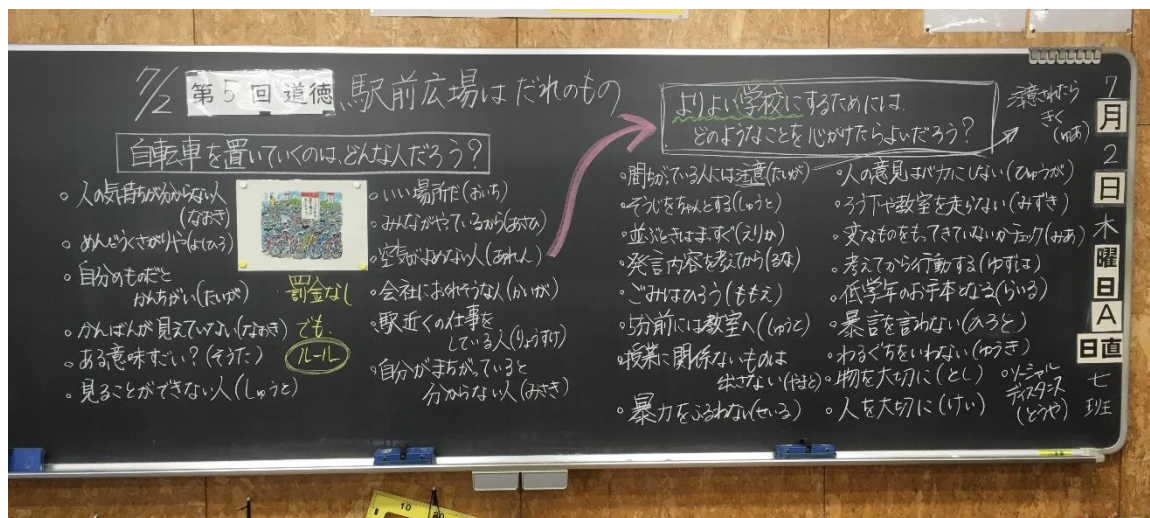 7/2 第5回道徳 駅前広場はだれのもの
自転車を置いていくのは、どんな人だろう？
。人の気持ちが分からない人
(なおき)
。めんどうくさがりや(よしのろう)
。自分のものだと
かんちがい(たいが)
。かんばんが見えていない(なおき)
。ある意味すごい？(そうた)
。見ることができない人(しゅうと)
罰金なし
でも
ルール
。いい場所だ(おいち)
。みんながやっているから(あさひ)
。空気がよめない人(あれん)
。会社におくれそうな人(かいが)
。駅近くの仕事を
している人(りょうすけ)
。自分がまちがっていると
分からない人(みさき)
よりよい学校にするためには、
どのようなことを心がけたらよいだろう？
注意されたら
きく
(ゆあ)
。間ちがっている人には注意(たいが)
。そうじをちゃんとする(しゅうと)
。並ぶときはまっすぐ(えりか)
。発言内容を考えてから(るな)
。ごみはひろう(ももえ)
。5分前には教室へ(しゅうと)
。授業に関係ないものは
出さない(やまと)
。暴力をふるわない(せいる)
。人の意見はバカにしない(ひゅうが)
。ろう下や教室を走らない(みずき)
。変なものをもってきていないかチェック(みあ)
。考えてから行動する(ゆずは)
。低学年のお手本となる(らいる)
。暴言を言わない(ひろと)
。わるぐちをいわない(ゆうき)
。物を大切に(とし)
。人を大切に(けい)
。ソーシャル
ディスタンス
(とうや)
7
月
2
日
木
曜
日
A
日直
七
班
10